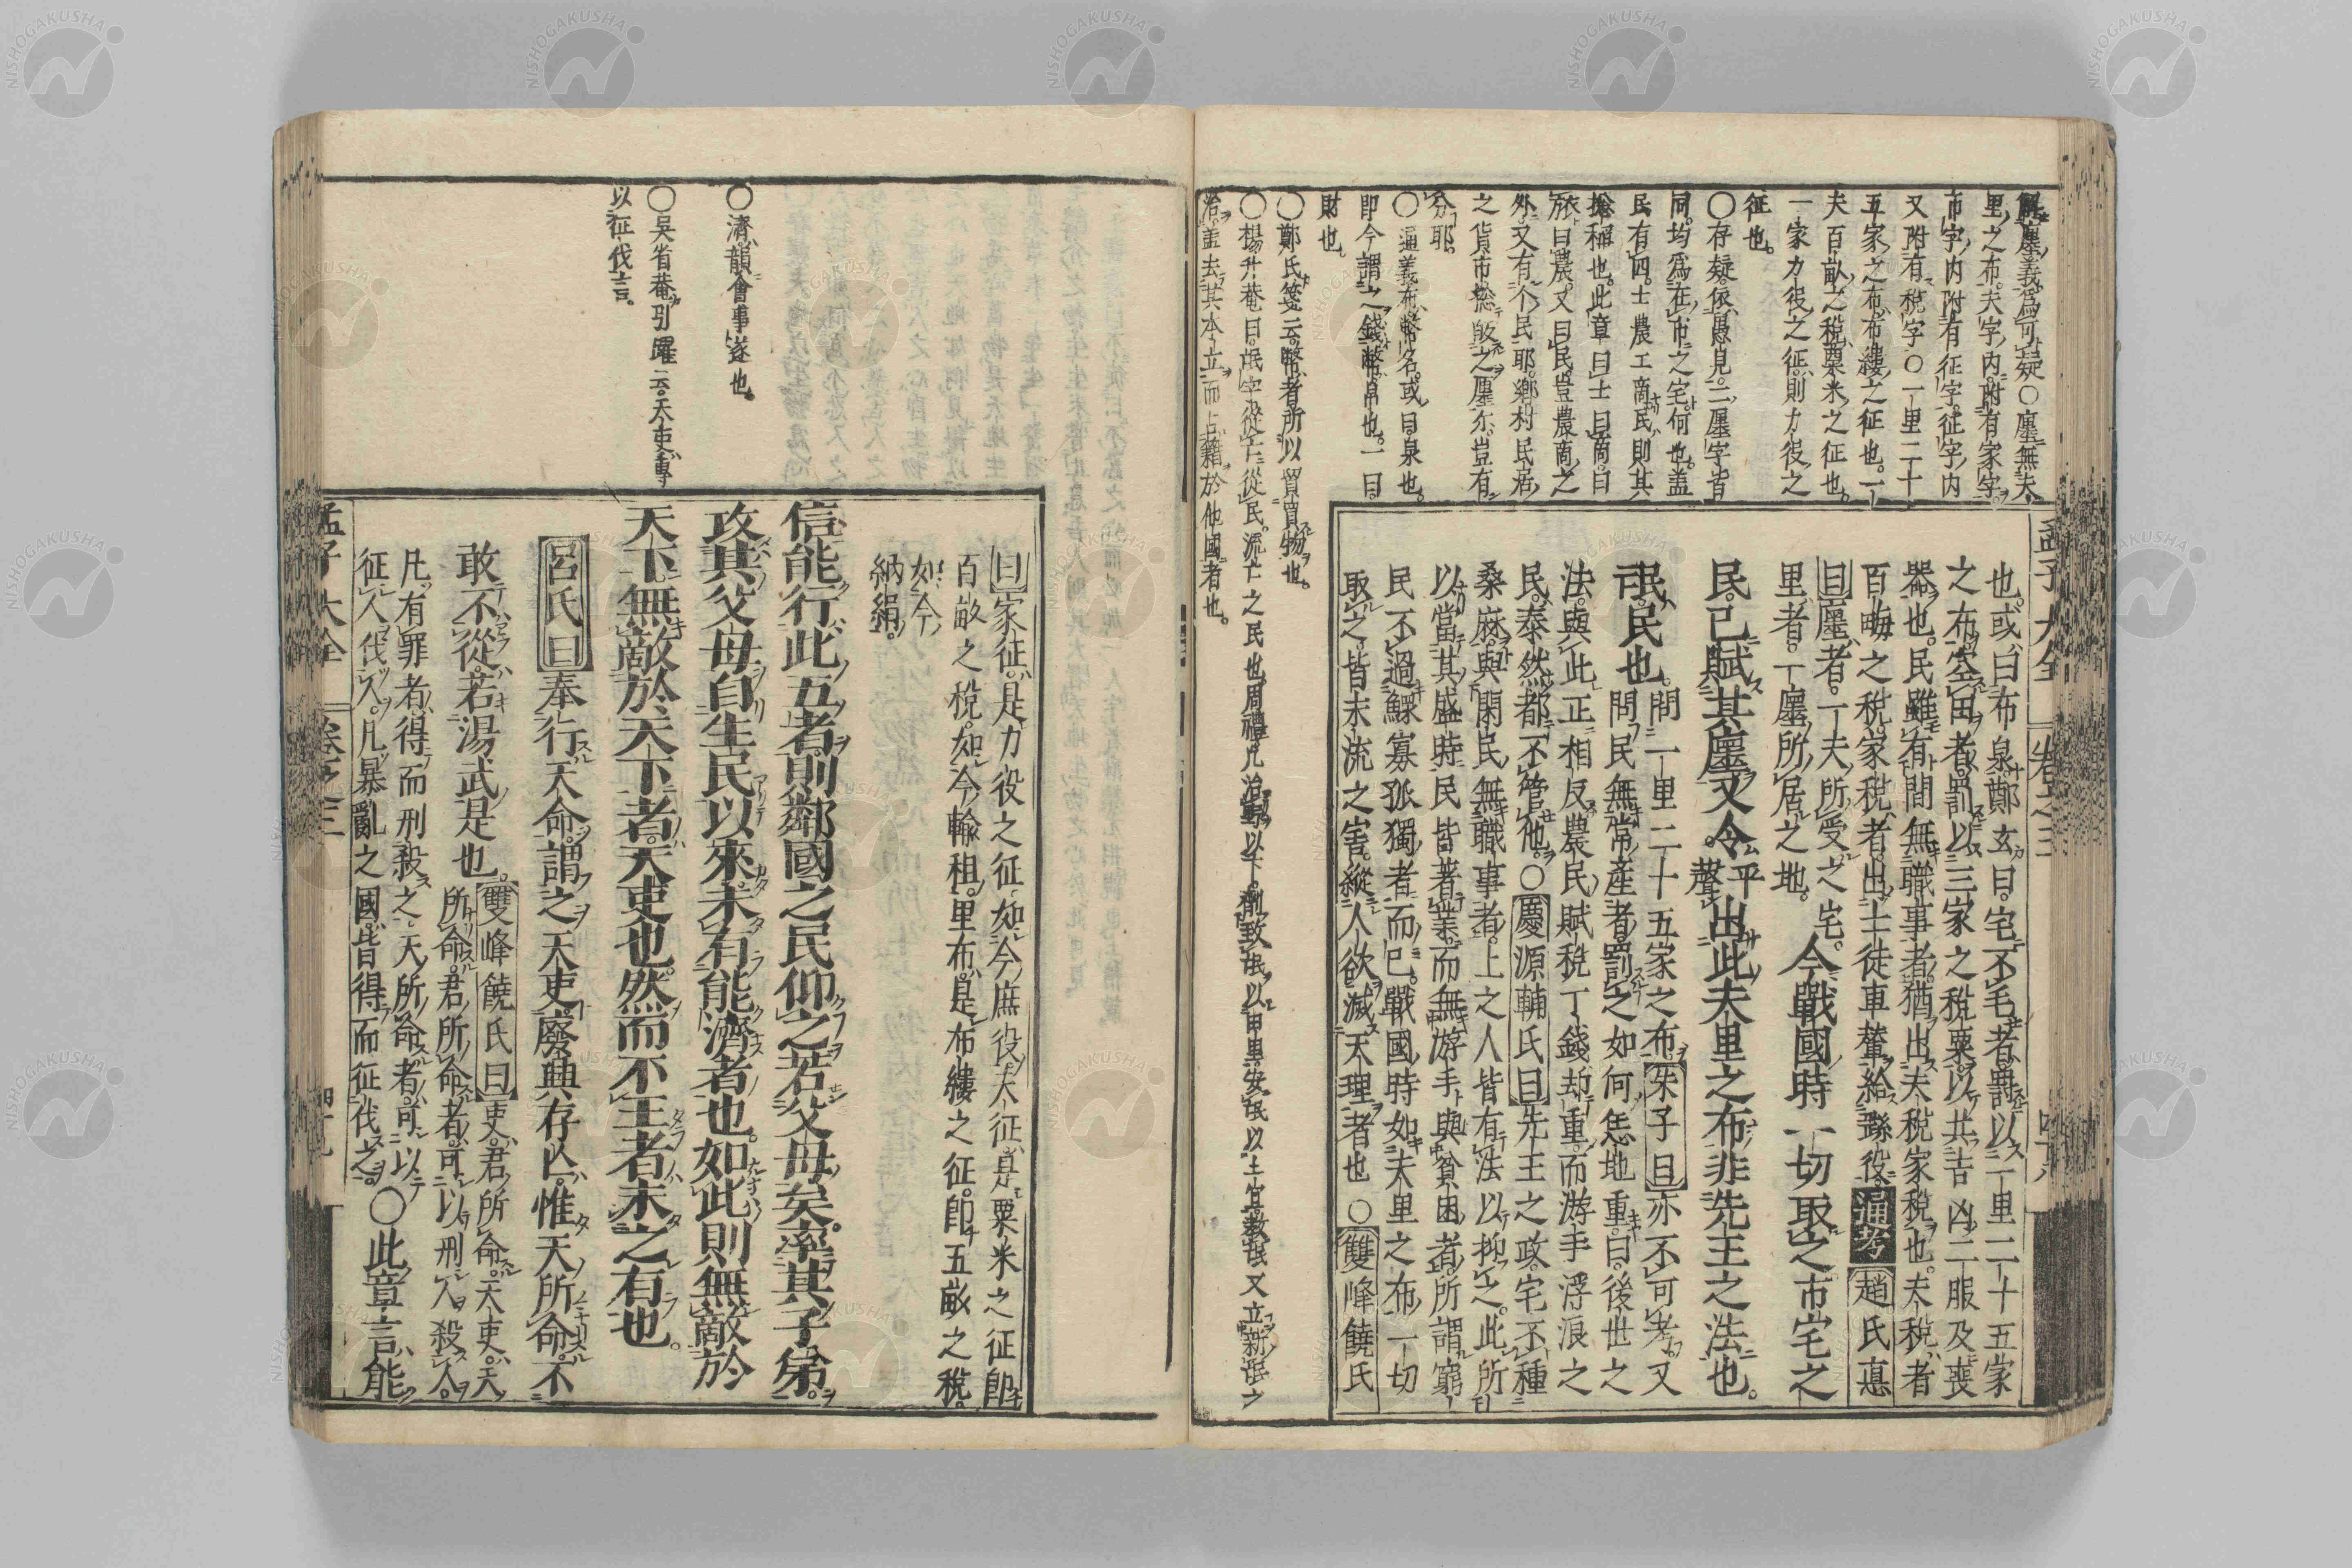 解廛義爲可疑○廛無夫
里之布夫字内附有家字
市字内附有征字征字内
又附有稅字○一里二十
五家之布布縷之征也一
夫百畝之稅粟米之征也
一家力役之征則力役之
征也
○存疑依愚見二廛字皆
同均爲在市之宅何也蓋
民有四士農工商民則其
摠稱也此章曰士曰商曰
旅曰農又曰民豈農商之
外又有个民耶鄉村民居
之貨市摠
分耶
○通義布幣名或曰泉也
即今謂之錢幣帛也一曰
財也
○鄭氏箋云幣者所以貿買物也
○楊升菴曰氓字從亡從民流亡之民也周禮凡治野以下劑致氓以田里安氓以土宜教氓又立新氓之
治蓋去其本立而占籍於他國者也
孟子大全 卷之三
也或曰布泉鄭玄曰宅不毛者罰以一里二十五家
之布空田者罰以三家之稅粟以共吉凶二服及喪
器也民雖有間無職事者猶出夫稅家稅也夫稅者
百畮之稅家稅者出士徒車輦給繇役通考趙氏悳
曰廛者一夫所受之宅
里者一廛所居之地
今戰國時一切取之市宅之
民已賦其廛又令平聲出此夫里之布非先王之法也
氓民也
問一里二十五家之布朱子曰亦不可考又
問民無常產者罰之如何恁地重曰後世之
法與此正相反農民賦稅丁錢却重而游手浮浪之
民泰然都不管他○慶源輔氏曰先王之政宅不種
桑麻與閑民無職事者上之人皆有法以抑之此所
以當其盛時民皆著業而無游手與貧困者所謂窮
民不過鰥寡孤獨者而已戰國時如夫里之布一切
取之皆末流之害縱人欲滅天理者也○雙峰饒氏
○濟韻會事遂也
○吳省菴引躍云天吏專
以征伐言
曰家征是力役之征如今庶役夫征是粟米之征即
百畝之稅如今輸租里布是布縷之征即五畝之稅
如今
納絹
信能行此五者則鄰國之民仰之若父母矣率其子弟
攻其父母自生民以來未有能濟者也如此則無敵於
天下無敵於天下者天吏也然而不王者未之有也
呂氏曰奉行天命謂之天吏廢興存亡惟天所命不
敢不從若湯武是也
雙峰饒氏曰吏君所命天吏天
所命君所命者可以刑人殺人
凡有罪者得而刑殺之天所命者可以
征人伐人凡暴亂之國皆得而征伐之
○此章言能
孟子大全 卷之三 四十九